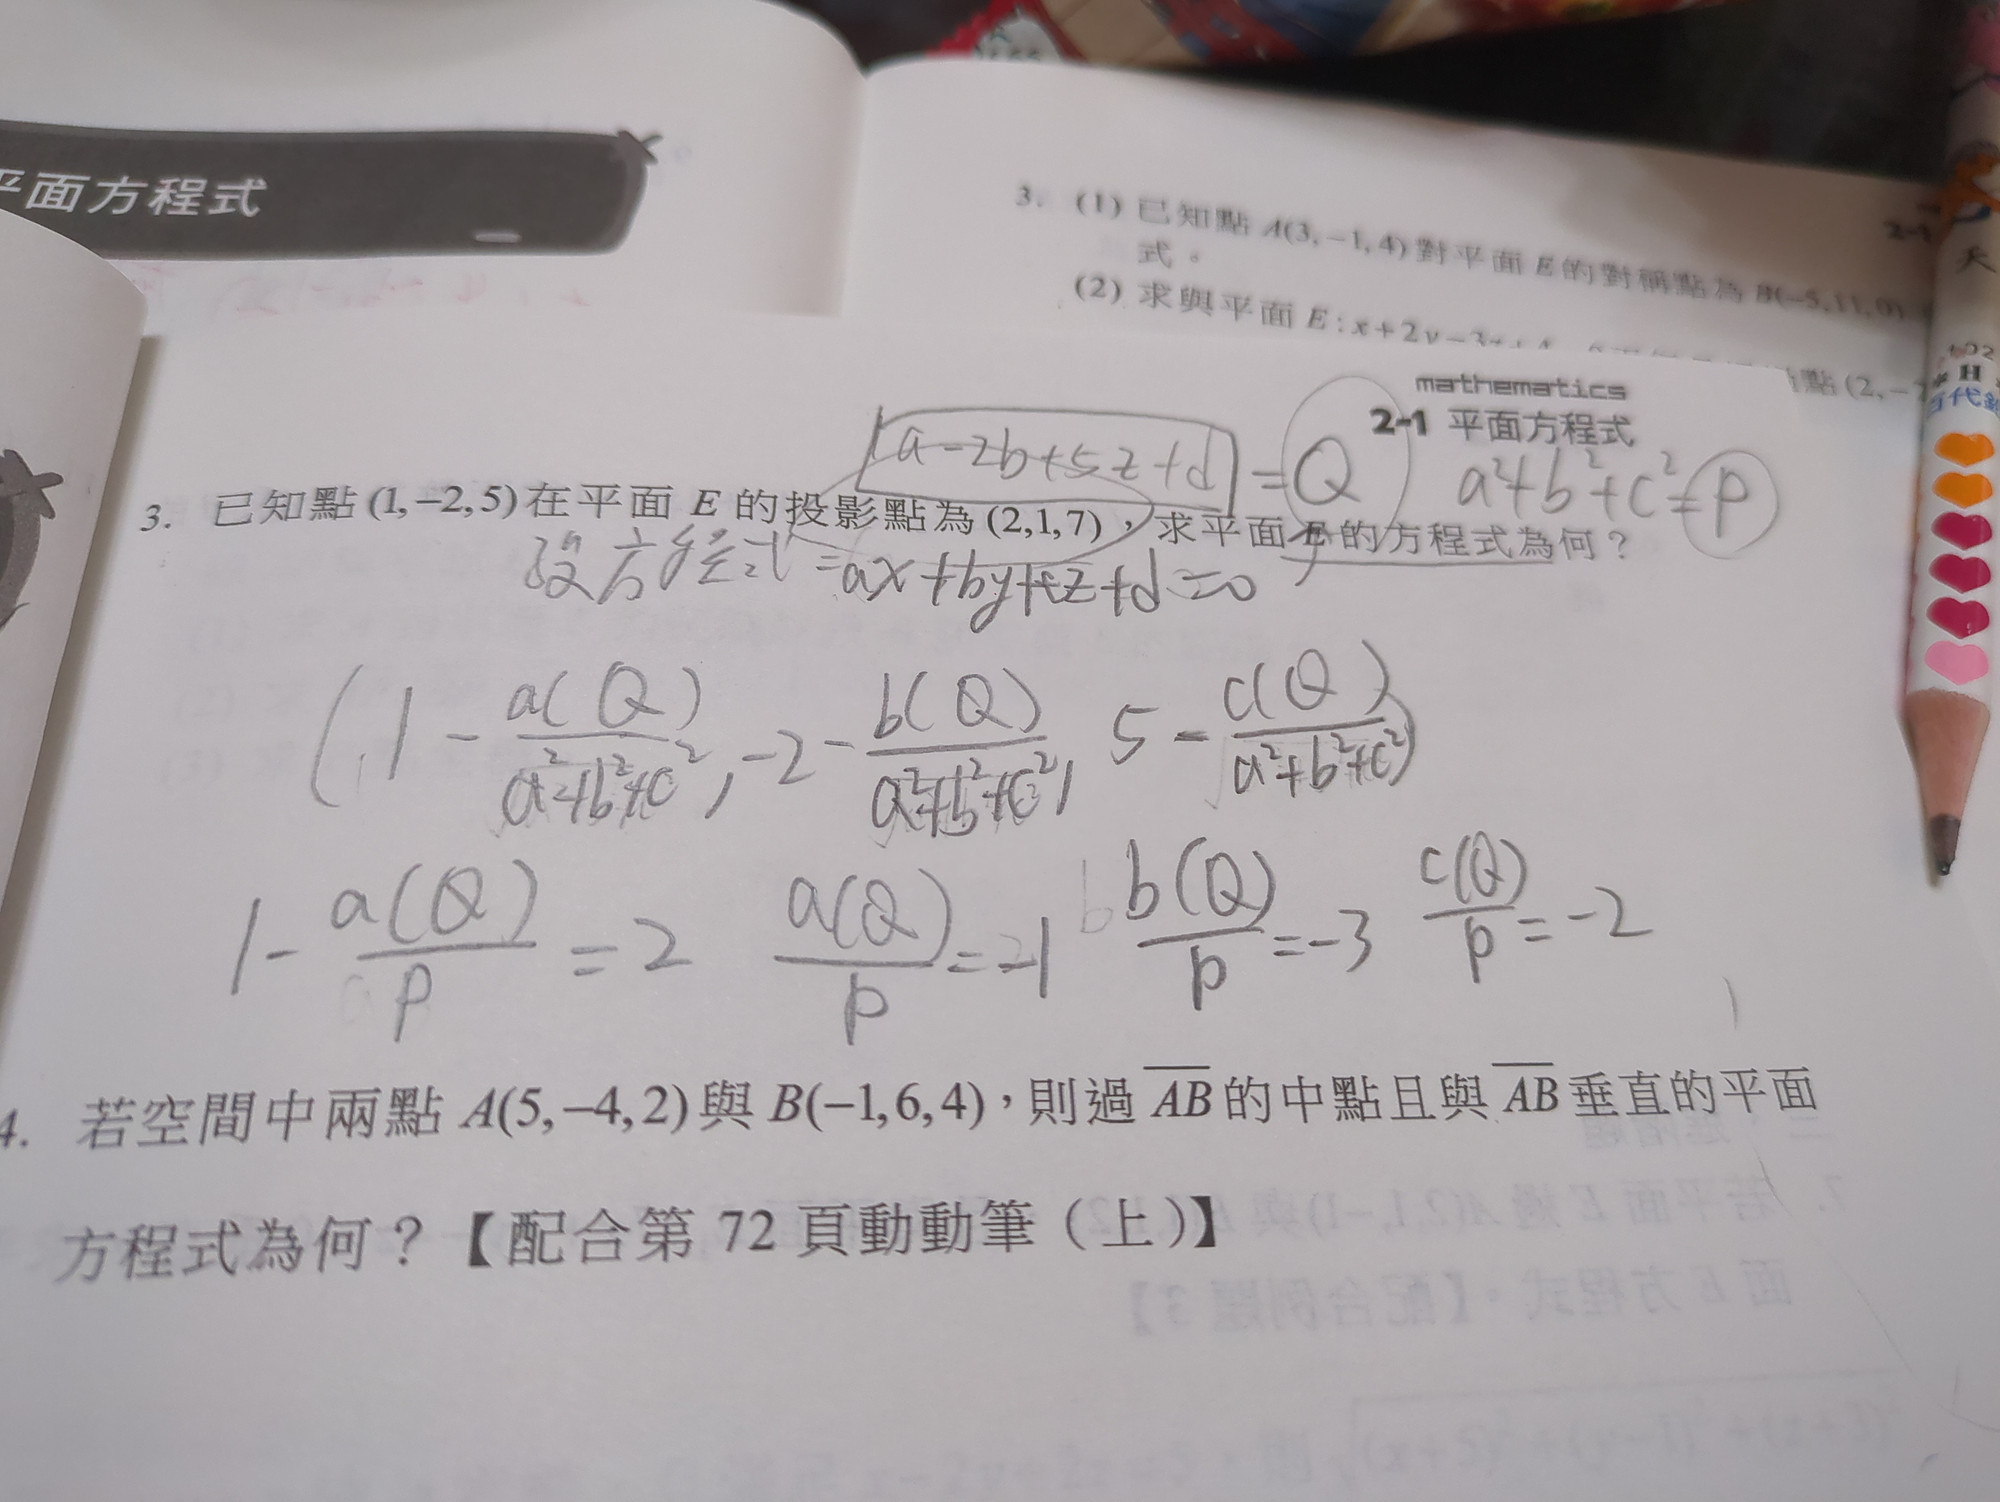 平面方程式
3. (1) 已知點 A(3,−1,4) 對平面 E 的對稱點為 B(−5,11,0)
式。
(2) 求與平面 E : x+2y−3z+4
點 (2,−
mathematics
2-1 平面方程式
|a−2b+5z+d| = Q a²+b²+c²=p
3. 已知點 (1,−2,5) 在平面 E 的投影點為 (2,1,7),求平面 E 的方程式為何?
設方程式=ax+by+cz+d=0
(1 − a(Q)/a²+b²+c², −2 − b(Q)/a²+b²+c², 5 − c(Q)/a²+b²+c²)
1 − a(Q)/p = 2 a(Q)/p = −1 b(Q)/p = −3 c(Q)/p = −2
4. 若空間中兩點 A(5,−4,2) 與 B(−1,6,4),則過 AB 的中點且與 AB 垂直的平面
方程式為何?【配合第 72 頁動動筆(上)】